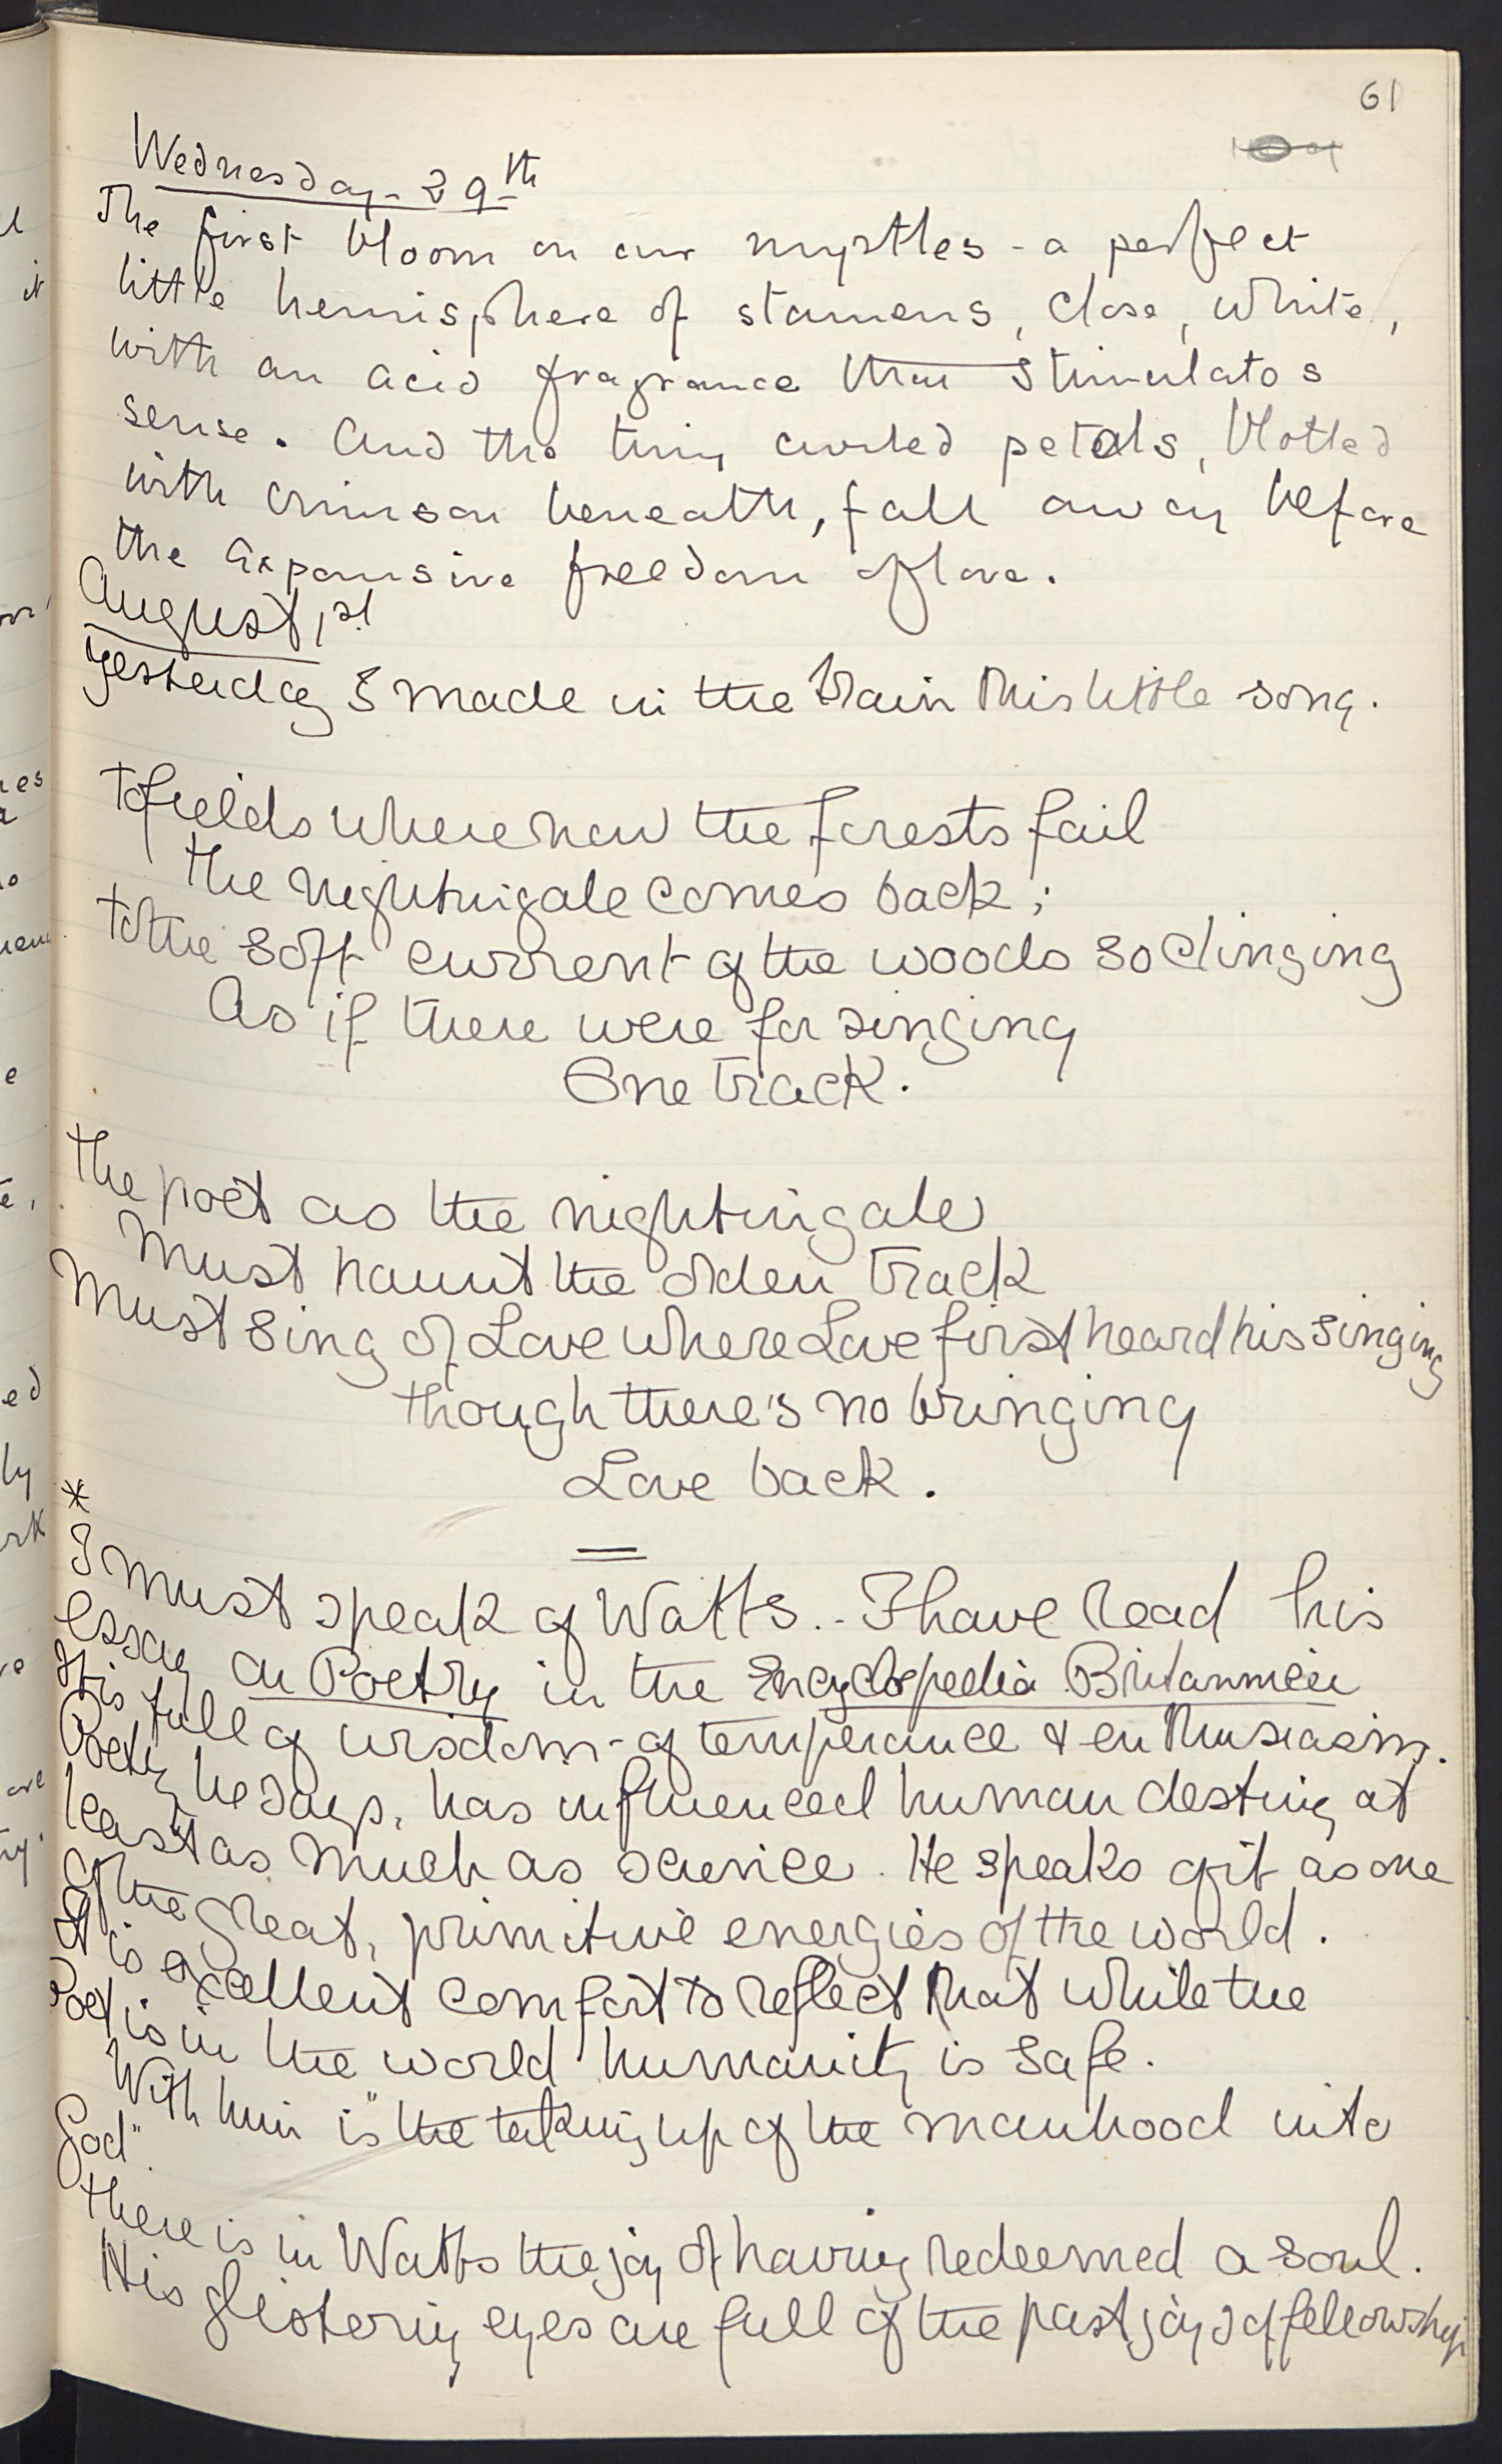 61
Wednesday - 29th
The first bloom on our myrtles - a perfect
little hemisphere of stamens, close, white,
with an acid fragrance that stimulates
sense. And the tiny curled petals, blotted
with crimson beneath, fall away before
the expansive freedom of love.
August 1st
Yesterday I made in the train this little song.
To fields where now the forests fail
The nightingale comes back;
To the soft current of the woods so clinging
As if there were for singing
One track.
The poet as the nightingale
Must haunt the olden track
Must sing of Love where Love first heard his singing
Though there's no bringing
Love back.
*
I must speak of Watts. - I have read his
essay on Poetry in the Encyclopedia Britannica
It is full of wisdom - of temperance & enthusiasm.
Poetry, he says, has influenced human destiny at
least as much as science. He speaks of it as one
of the great, primitive energies of the world.
It is excellent comfort to reflect that while the
Poet is in the world humanity is safe.
With him is "the taking up of the manhood into
God".
There is in Watts the joy of having redeemed a soul.
His glistering eyes are full of the past joys of fellowship